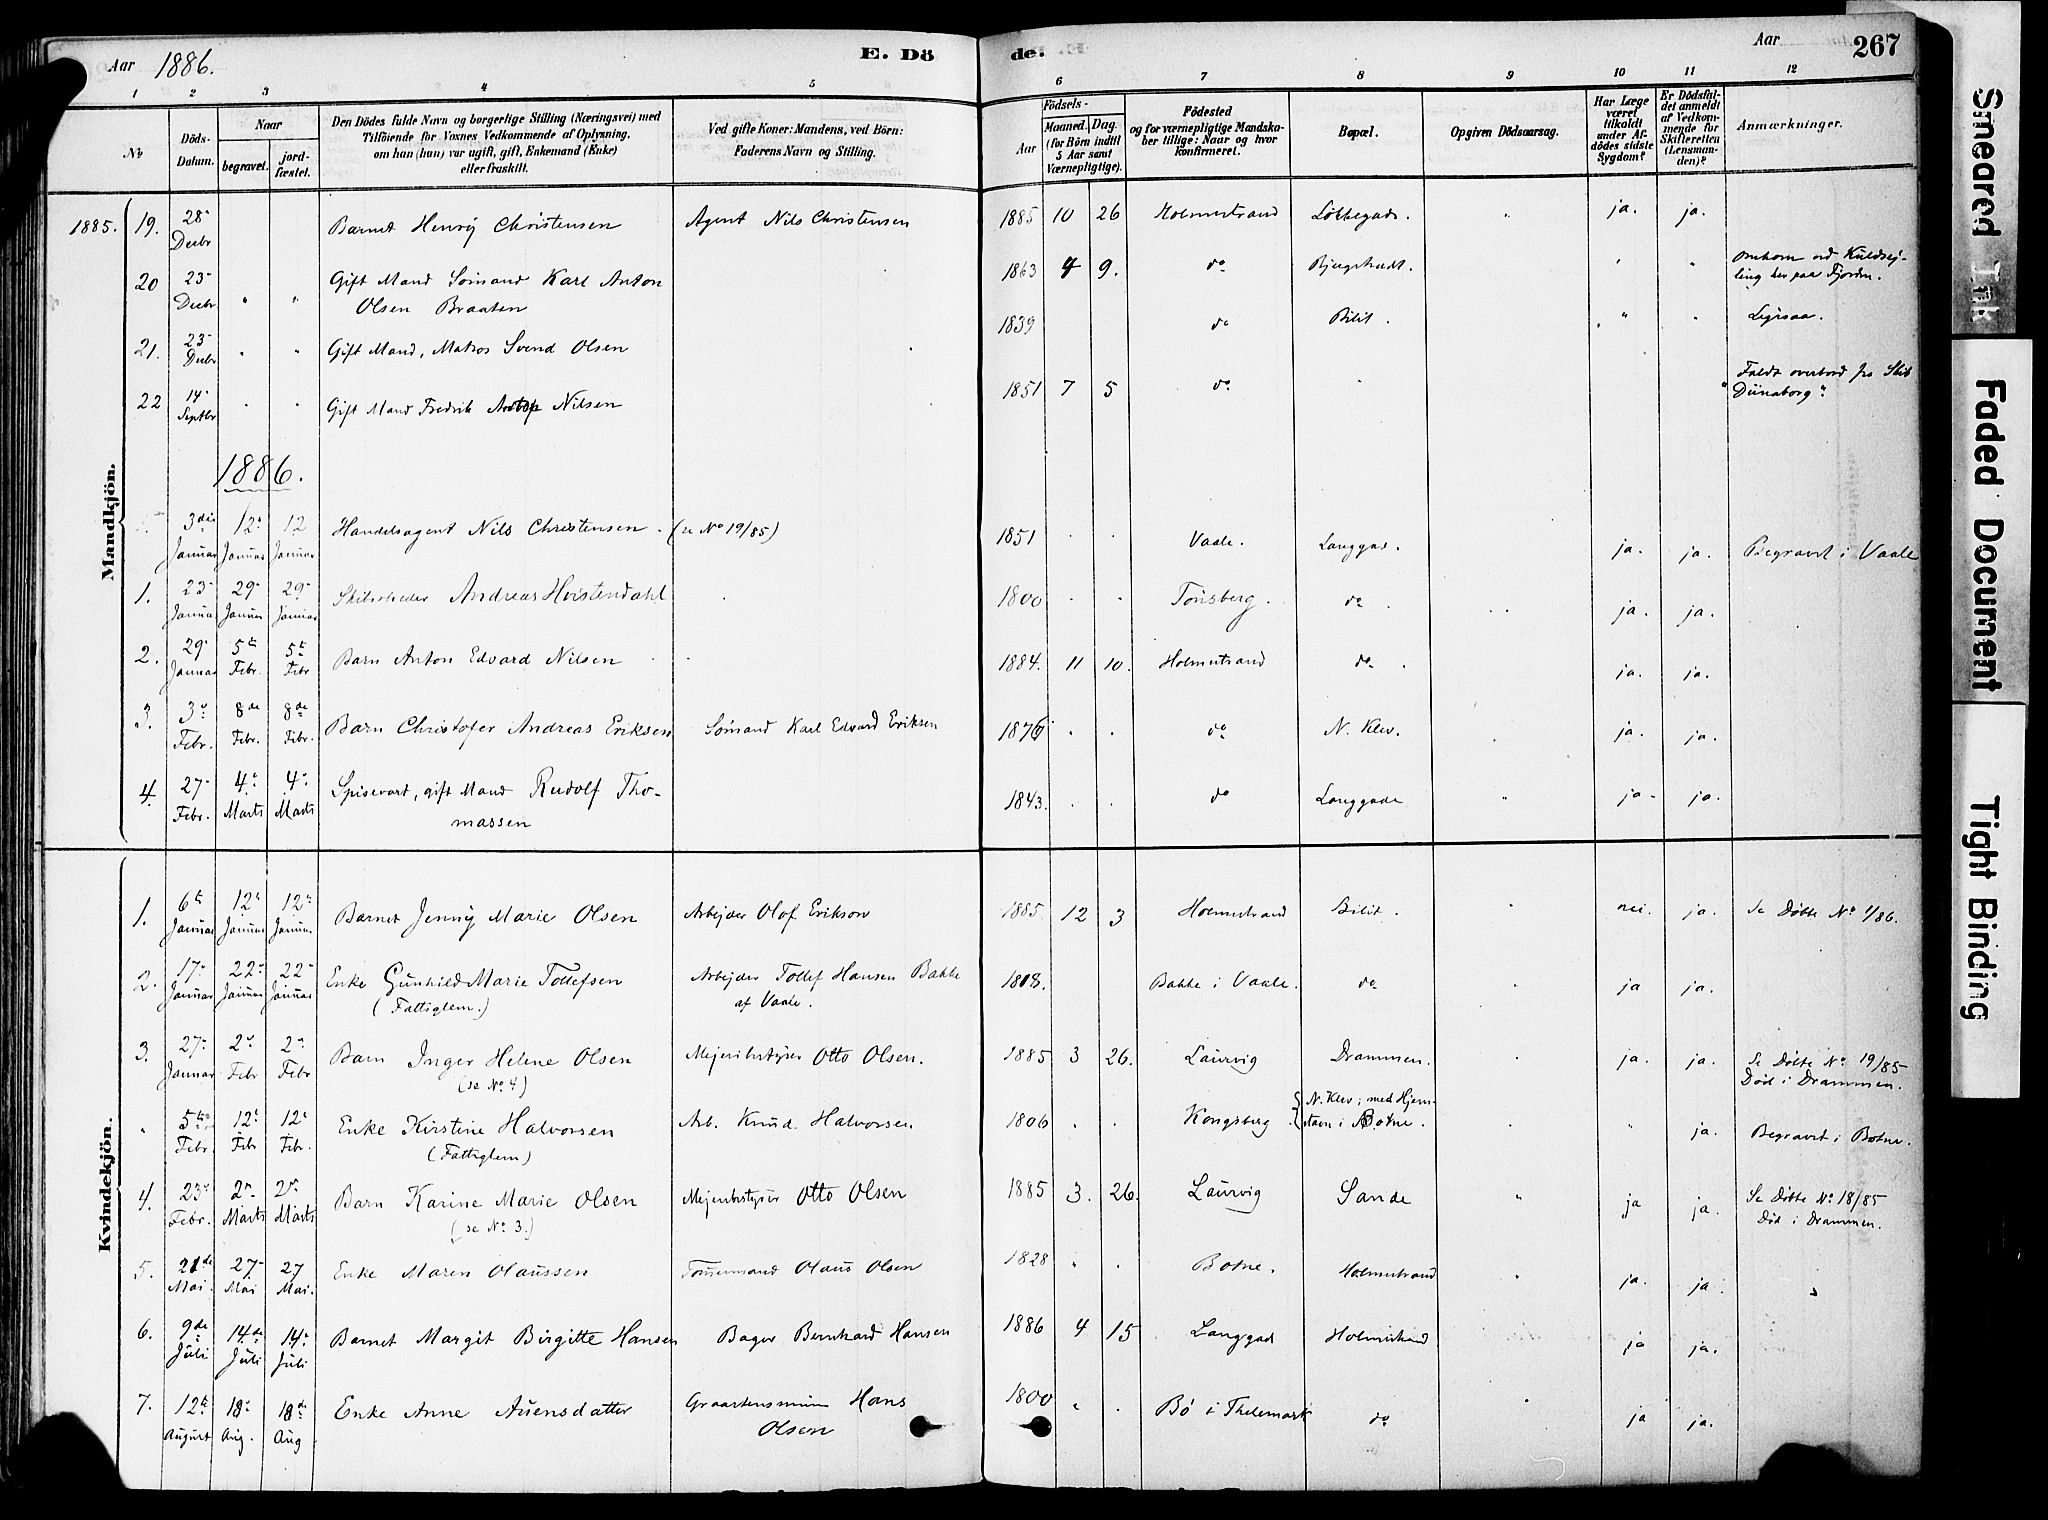 Aar 1886.
E. Dö
de.
Aar
267
1 2 3 4 5 6 7 8 9 10 11 12
No
Döds-Datum.
Naar
begravet.
jord-fæstet.
Den Dödes fulde Navn og borgerlige Stilling (Næringsvei) med
Tilföiende for Voxnes Vedkommende af Oplysning,
om han (hun) var ugift, gift, Enkemand (Enke)
eller fraskilt.
Ved gifte Koner: Mandens, ved Börn:
Faderens Navn og Stilling.
Födsels-
Aar
Maaned. Dag.
(for Börn indtil
5 Aar samt
Værnepligtige).
Födested
og for værnepligtige Mandska-
ber tillige: Naar og hvor
konfirmeret.
Bopæl.
Opgiven Dödsaarsag.
Har Læge
været
tilkaldt
under Af-
dödes sidste
Sygdom?
Er Dödsfal-
det anmeldt
af Vedkom-
mende for
Skifteretten
(Lensman-
den)?
Anmærkninger.
Mandkjön.
1885. 19. 28 Decbr Barnet Henry Christensen Agent Nils Christensen 1885 10 26 Holmestrand ja. ja.
20 23 Decbr " " Gift Mand Sömand Karl Anton
Olsen Braaten 1863 4 9. do " Omkom ved Kuldsej-
ling her paa Fjorden.
21. 23 Decbr Gift Mand, Matros Svend Olsen 1839 do Bilit. " Ligesaa.
22 14 Septbr Gift Mand Fredrik Nilsen 1851 7 5 do Faldt overbord fra Skib
"Dünaborg"
1886.
3die Januar 12 Januar 12 Januar Handelsagent Nils Christensen. (se No 19/85) 1851 Vaale. Langgad. ja. ja. Begravet i Vaale
1. 23 Januar 29 Januar 29 Januar Skibsrheder Andreas Hvistendahl 1800 Tönsberg. do ja. ja.
2. 29 Januar 5te Febr. 5te Febr Barn Anton Edvard Nilsen 1884. 11 10. Holmestrand do. ja. ja.
3. 3 Febr. 8de Febr. 8de Febr. Barn Christofer Andreas Eriksen Sömand Karl Edvard Eriksen 1876 do N. Klev. ja. ja.
4. 27 Febr. 4 Marts 4 Marts Spisevert, gift Mand Rudolf Tho-
massen 1843. do Langgade ja. ja.
Kvindekjön.
1. 6te Januar 12te Januar 12te Januar Barnet Jenny Marie Olsen Arbejder Olof Erikson 1885 12 3 Holmestrand Bilit. nei. ja. Se Döbte No 1/86.
2. 17 Januar 22 Januar 22 Januar Enke Gunhild Marie Tollefsen Arbejder Tollef Hansen Bakke
(Fattiglem.) af Vaale. 1808. Bakke i Vaale. do ja ja.
3. 27 Januar 2 Febr 2 Febr Barn Inger Helene Olsen Mejeribestyrer Otto Olsen. 1885 3 26. Laurvig Drammen. ja. ja. Se Döbte No 19/85
(se No 4) Död i Drammen.
" 5te Febr 12te Febr 12te Febr. Enke Kirstine Halvorsen Arb. Knud Halvorsen 1806 Kongsberg N. Klev; med Hjem-
(Fattiglem) stavn i Botne. " ja. Begravet i Botne.
4. 23 Febr. 2 Marts 2 Marts Barn Karine Marie Olsen Mejeribestyrer Otto Olsen 1885 3. 26. Laurvig Sande " ja ja. Se Döbte No 18/85
(se No 3.) Död i Drammen.
5. 21de Mai. 27 Mai 27 Mai. Enke Maren Olaussen Tömmermand Olaus Olsen 1828 Botne. Holmestrand ja. ja.
6. 9de Juli 14de Juli 14 Juli Barnet Margit Birgitte Hansen Bager Bernhard Hansen 1886 4 15 Langgad Holmestrand ja ja.
7. 12te August 18 Aug. 18de Aug Enke Anne Auensdatter Hans
Olsen 1800 Bö i Thelemark do ja ja.
Smeared Ink
Faded Document
Tight Binding